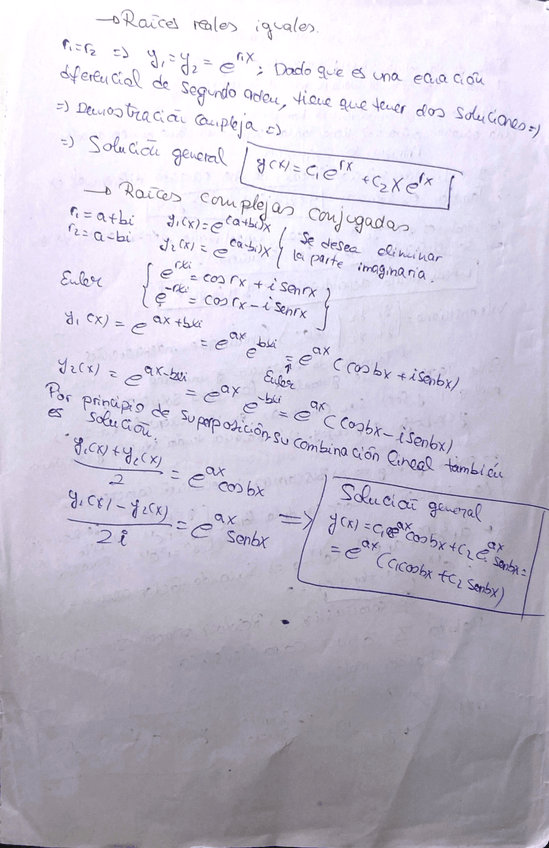 → Raíces reales iguales.
r₁=r₂ => y₁=y₂=e^{r₁x}; Dado que es una ecuación
diferencial de segundo orden, tiene que tener dos soluciones=>
=> Demostración compleja =>
=> Solución general y(x)=c₁e^{rx}+c₂xe^{rx}
→ Raíces complejas conjugadas.
r₁=a+bi y₁(x)=e^{(a+bi)x} { Se desea eliminar
r₂=a-bi y₂(x)=e^{(a-bi)x} { la parte imaginaria.
Euler { e^{rxi}=cosrx+isenrx }
{ e^{-rxi}=cosrx-isenrx }
y₁(x)=e^{ax+bxi}=e^{ax}e^{bxi}=e^{ax}(cosbx+isenbx)
Euler ↑
y₂(x)=e^{ax-bxi}=e^{ax}e^{-bxi}=e^{ax}(cosbx-isenbx)
Por principio de superposición, su combinación lineal también
es solución.
(y₁(x)+y₂(x))/2=e^{ax}cosbx
(y₁(x)-y₂(x))/2i=e^{ax}senbx =>
Solución general
y(x)=c₁e^{ax}cosbx+c₂e^{ax}senbx=
=e^{ax}(c₁cosbx+c₂senbx)